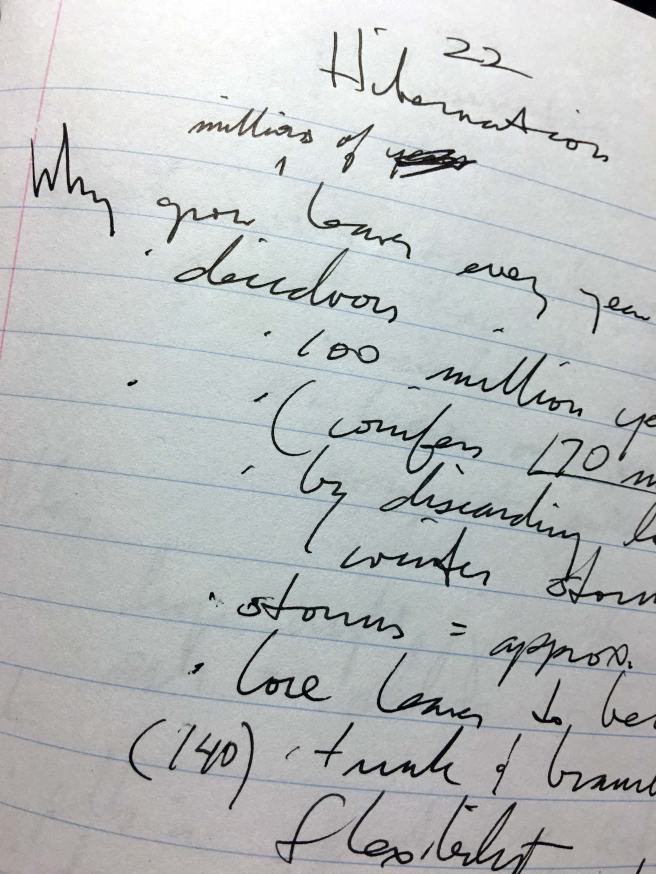 22
Hibernation
millions of
Why grow leaves every year
· deciduous
· 100 million ye
· (conifers 170 m
· by discarding l
winter storm
· storms = approx.
· lose leaves to be
(140) · trunk & branc
flexibility